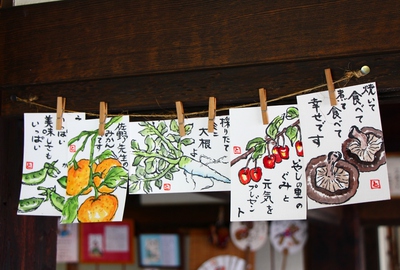 焼いて
食べて
煮て
食べて
幸せです
の里の
ぐみと
元気を
プレゼント
採りたて
大根
佐野先生の
みかん
です
美味しさも
いっぱい